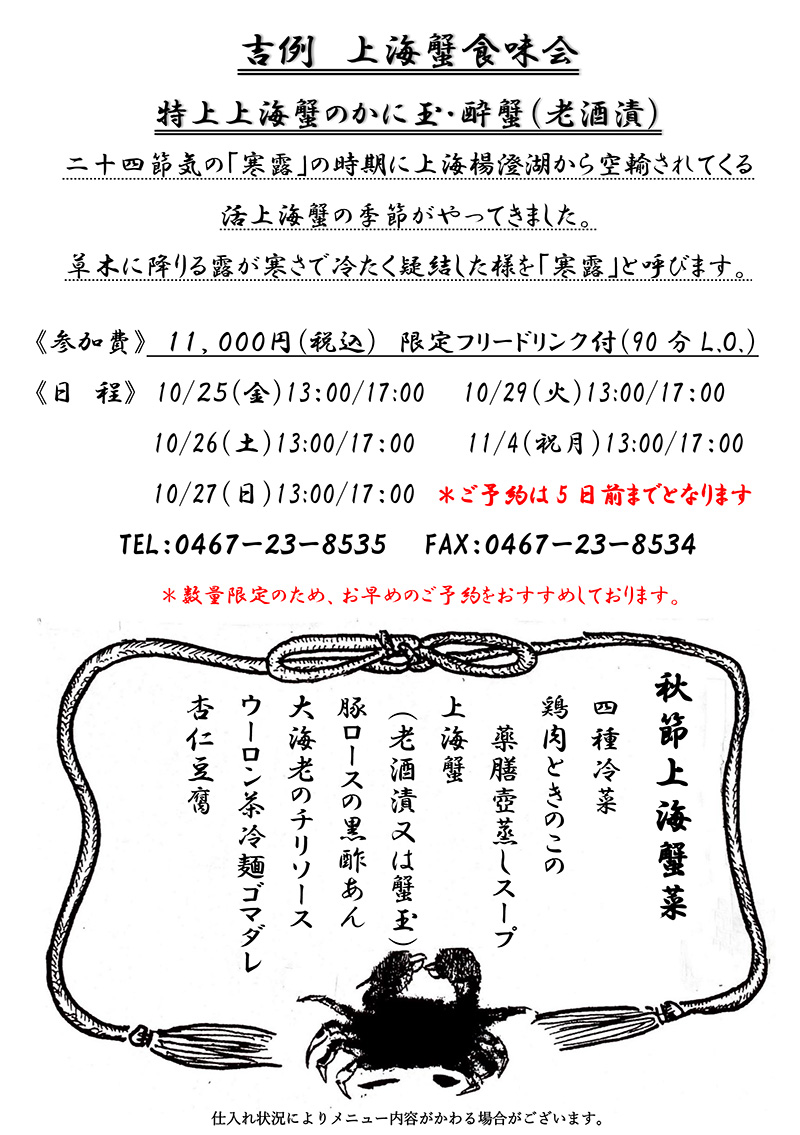 吉例　上海蟹食味会
特上上海蟹のかに玉・酔蟹（老酒漬）
二十四節気の「寒露」の時期に上海楊澄湖から空輸されてくる
活上海蟹の季節がやってきました。
草木に降りる露が寒さで冷たく凝結した様を「寒露」と呼びます。
《参加費》 11,000円（税込）　限定フリードリンク付（90分L.O.）
《日　程》 10/25（金）13：00/17:00　10/29（火）13:00/17：00
10/26（土）13:00/17：00　11/4（祝月）13:00/17：00
10/27（日）13:00/17：00　＊ご予約は5日前までとなります
TEL：0467－23－8535　FAX：0467－23－8534
＊数量限定のため、お早めのご予約をおすすめしております。
秋節上海蟹菜
四種冷菜
鶏肉ときのこの
薬膳壺蒸しスープ
上海蟹
（老酒漬又は蟹玉）
豚ロースの黒酢あん
大海老のチリソース
ウーロン茶冷麺ゴマダレ
杏仁豆腐
仕入れ状況によりメニュー内容がかわる場合がございます。